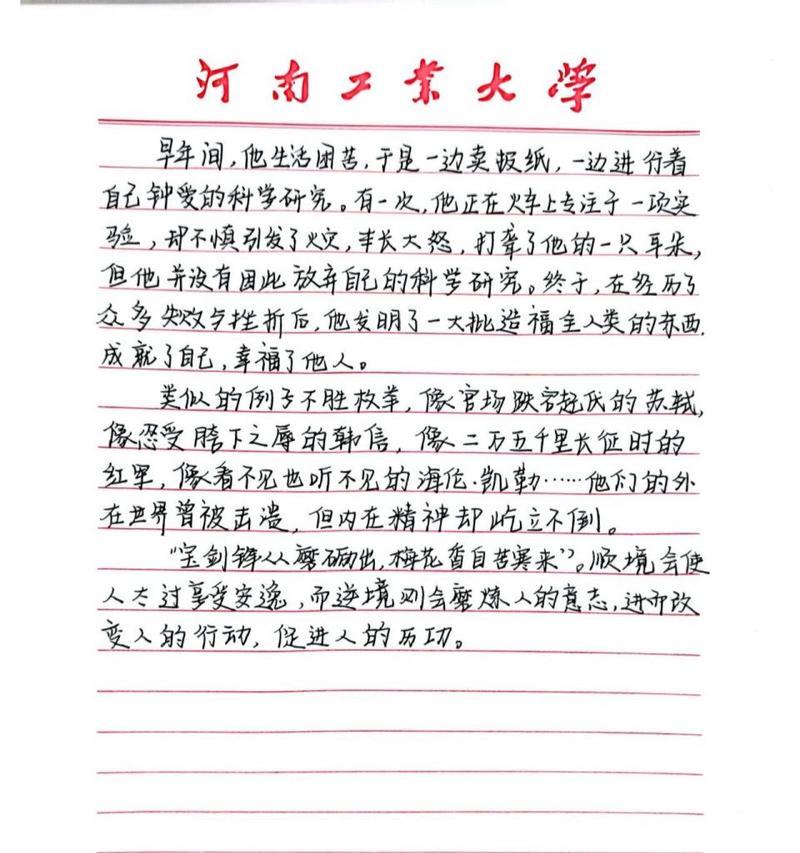 河南工业大学
早年间，他生活困苦，于是一边卖报纸，一边进行着
自己钟爱的科学研究。有一次，他正在火车上专注于一项实
验，却不慎引发了火灾，车长大怒，打聋了他的一只耳朵，
但他并没有因此放弃自己的科学研究。终于，在经历了
众多失败与挫折后，他发明了一大批造福全人类的东西，
成就了自己，幸福了他人。
类似的例子不胜枚举，像官场跌宕起伏的苏轼，
像忍受胯下之辱的韩信，像二万五千里长征时的
红军，像看不见也听不见的海伦·凯勒……他们的外
在世界曾被击溃，但内在精神却屹立不倒。
“宝剑锋从磨砺出，梅花香自苦寒来”。顺境会使
人太过享受安逸，而逆境则会磨炼人的意志，进而改
变人的行动，促进人的历功。